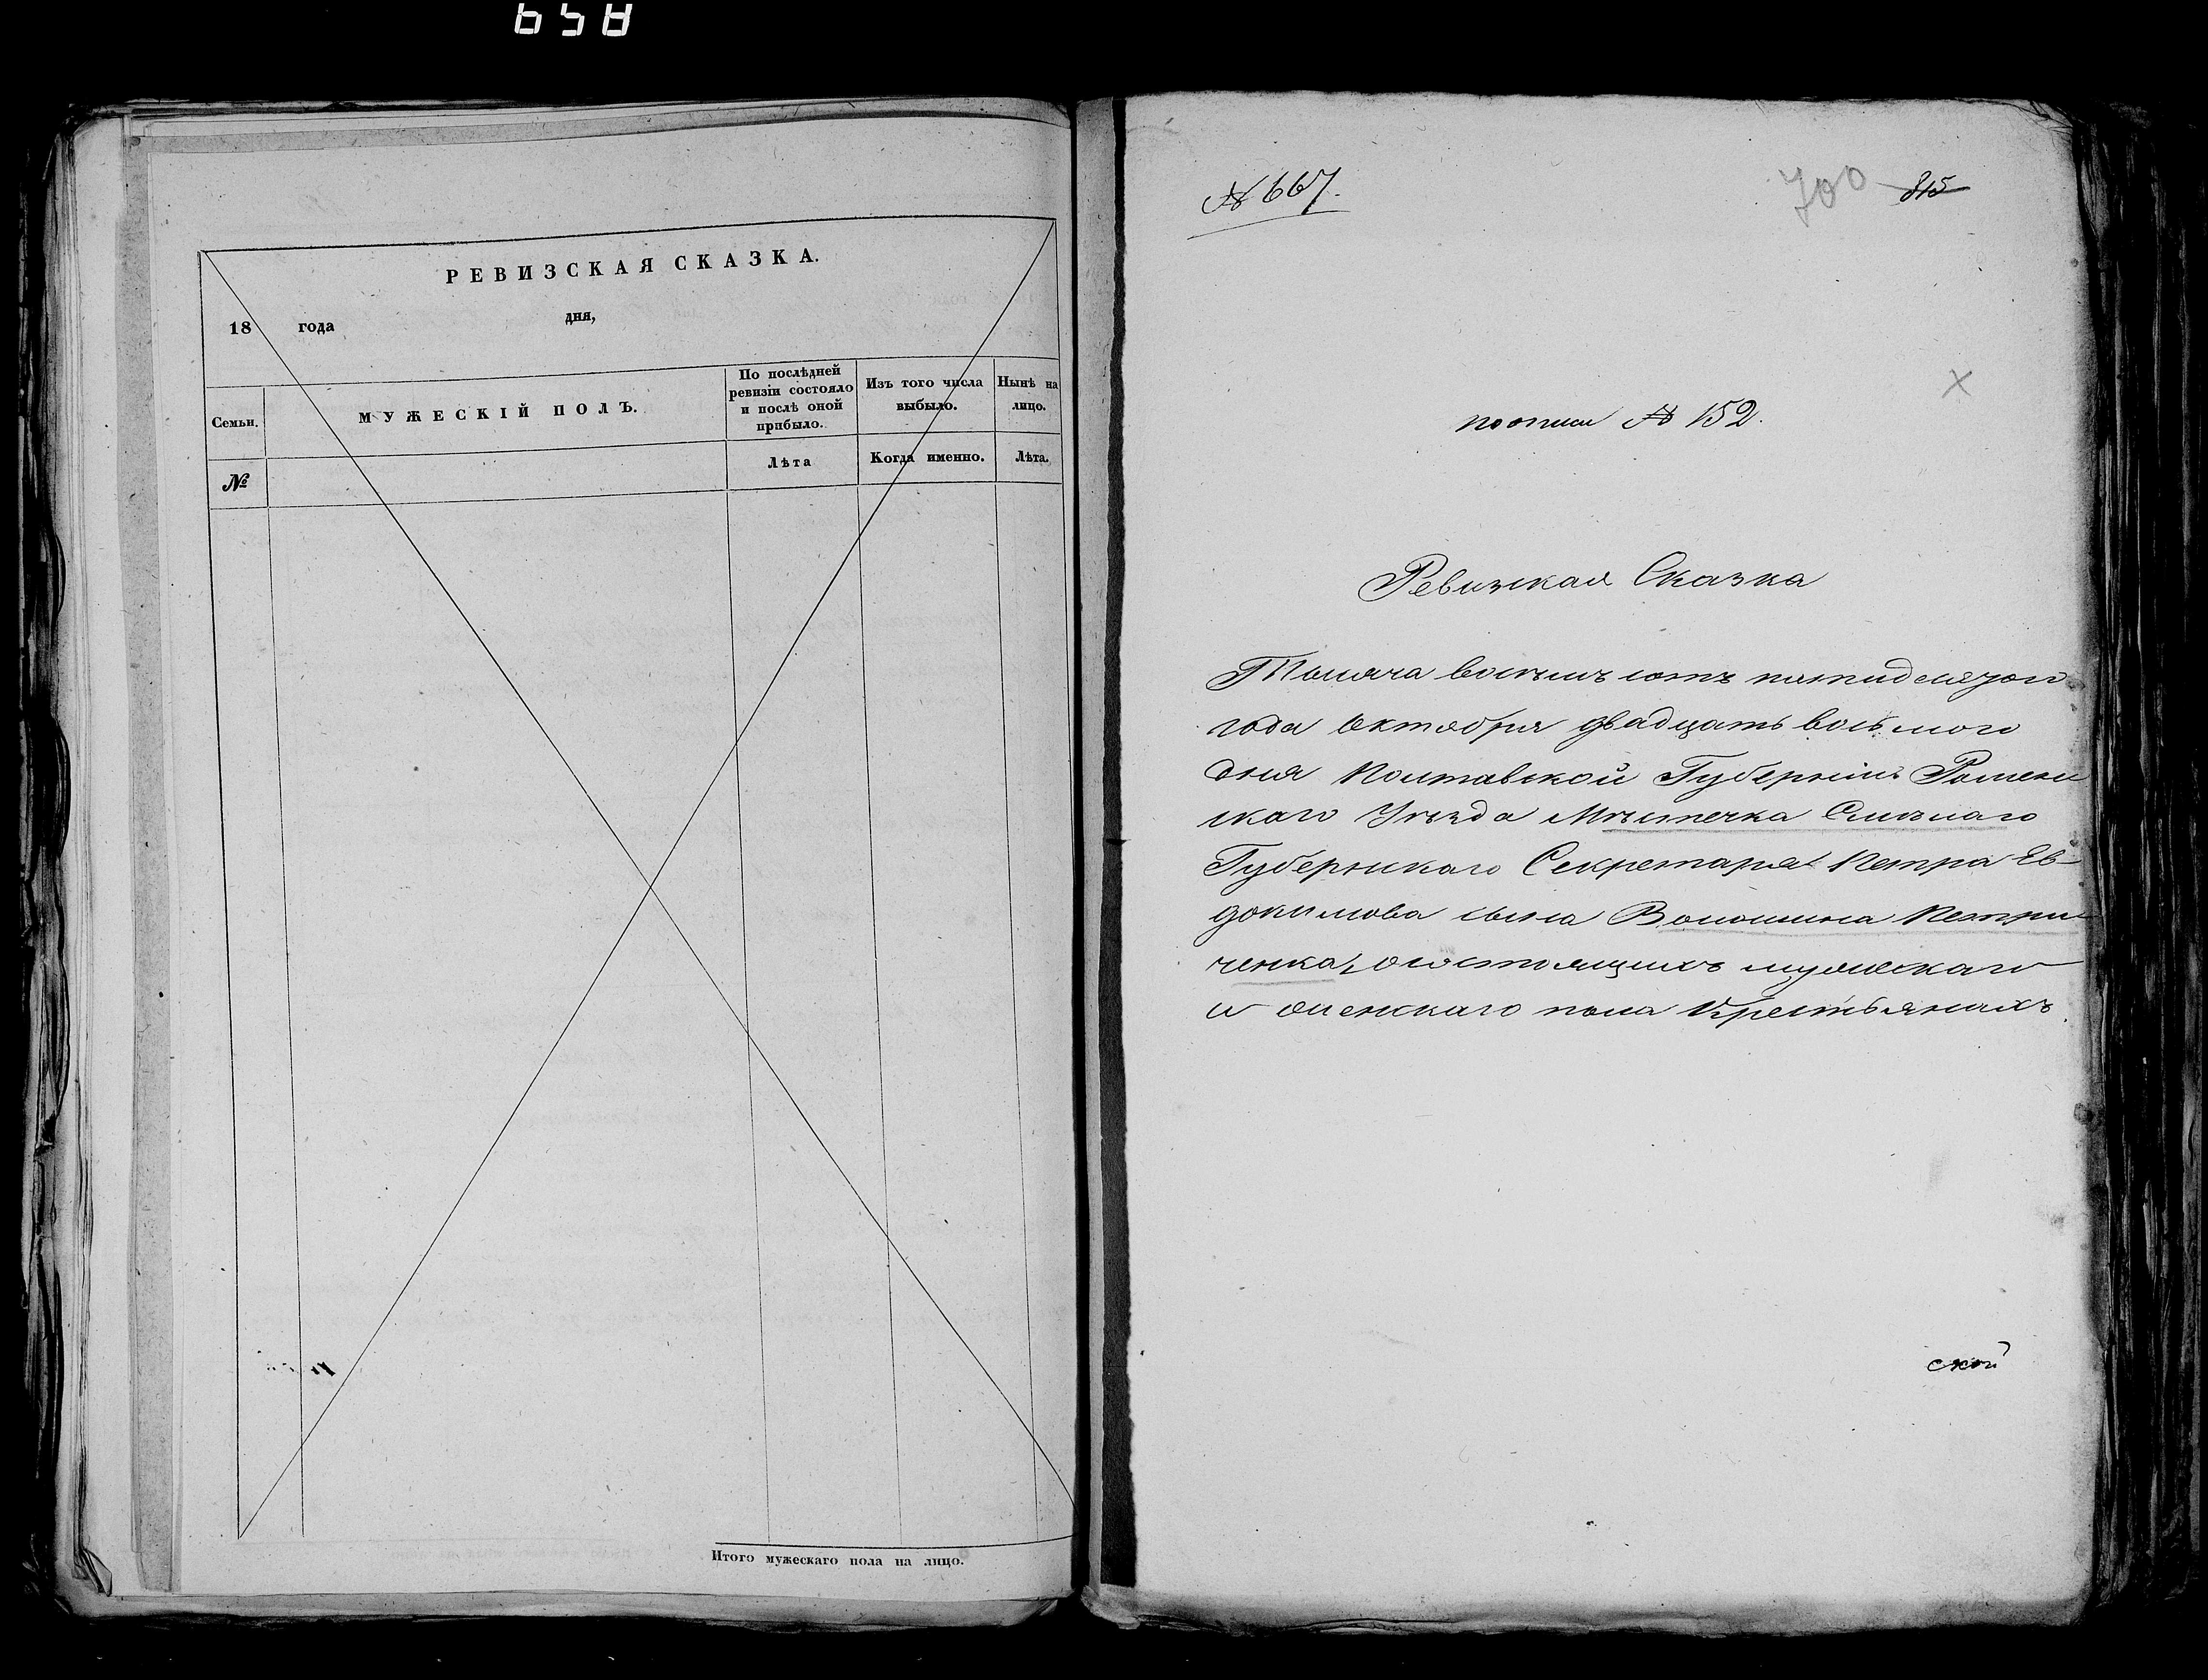 859
РЕВИЗСКАЯ СКАЗКА.
18 года дня,
Семьи.
МУЖЕСКІЙ ПОЛЪ.
По послѣдней ревизіи состояло и послѣ оной прибыло.
Изъ того числа выбыло.
Нынѣ на лицо.
№
Лѣта
Когда именно.
Лѣта.
Итого мужескаго пола на лицо.
№ 667.
700 815
поописи № 152.
Ревизская Сказка
Тысяча восемь сотъ пятидесятого
года Октября двадцать восьмого
дня Полтавской Губерніи Ромен
скаго Уѣзда Мѣстечка Смѣлаго
Губернскаго Секретаря Петра Ев
докимова сына Волошина Петри
ченка, осостоящихъ мужескаго
и женскаго пола Крестьянахъ.
ской